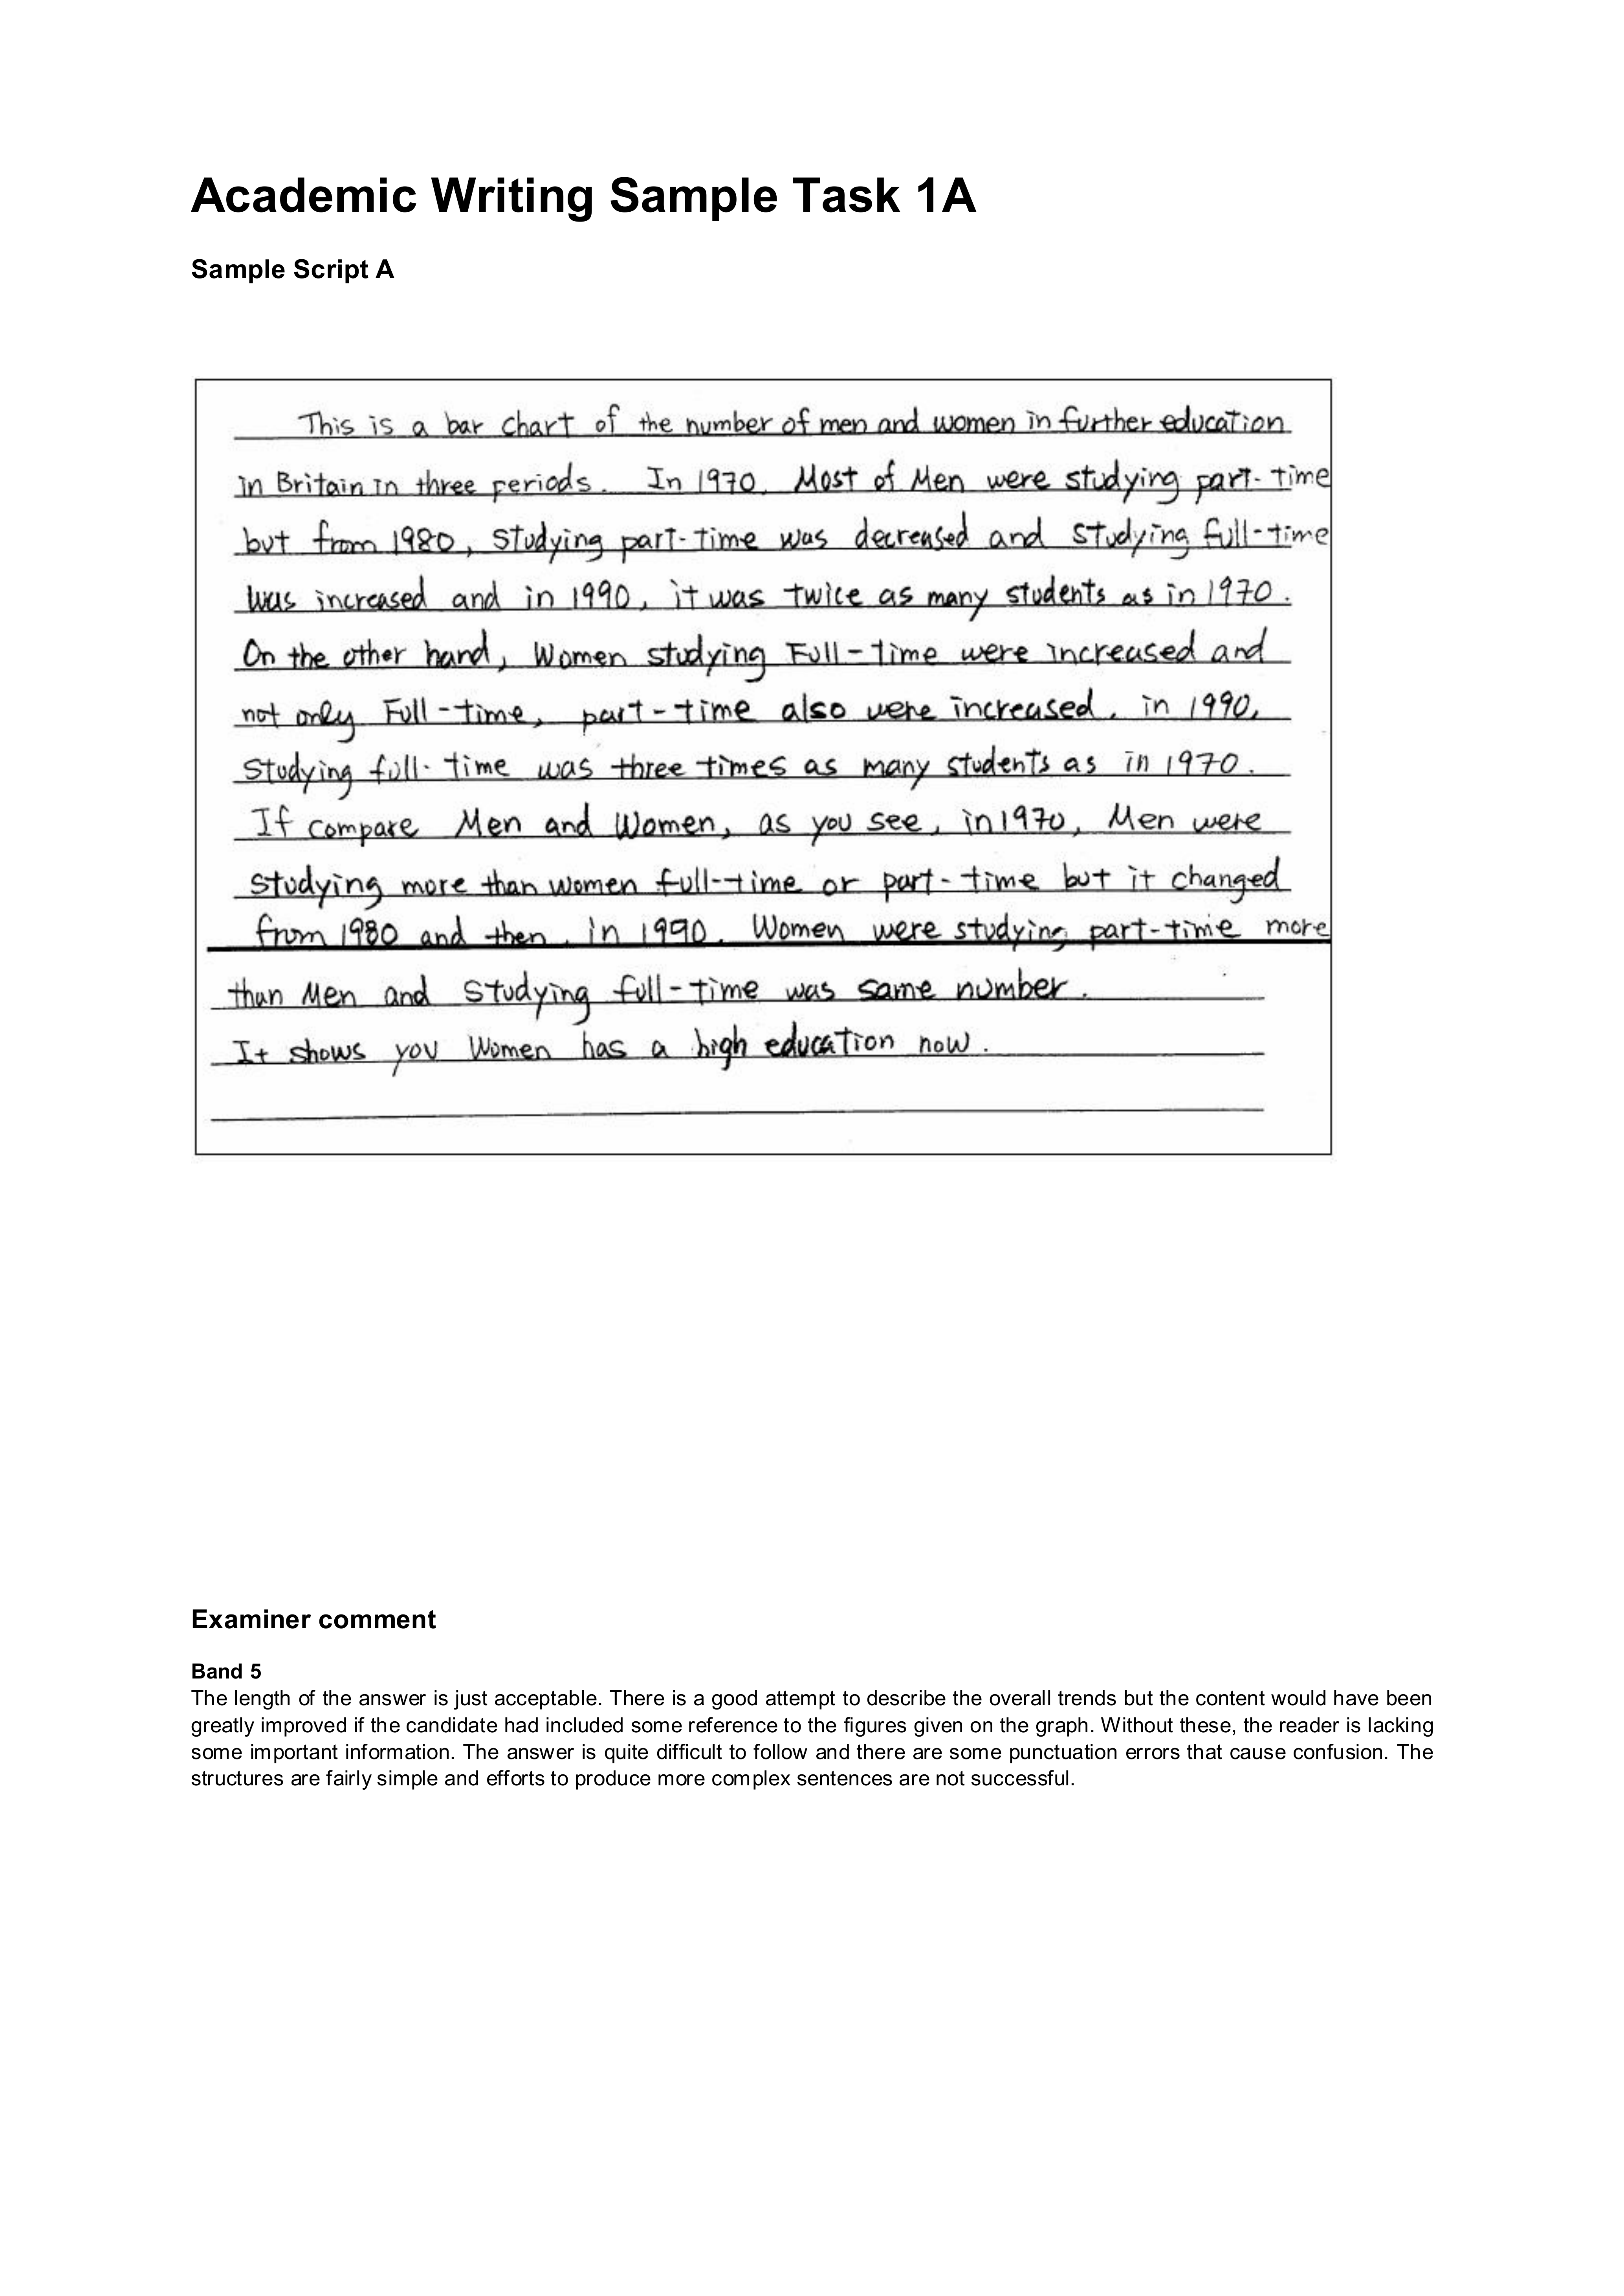 Academic Writing Sample Task 1A
Sample Script A
This is a bar chart of the number of men and women in further education
in Britain in three periods. In 1970. Most of Men were studying part-time
but from 1980, studying part-time was decreased and studying full-time
was increased and in 1990, it was twice as many students as in 1970.
On the other hand, Women studying Full-time were increased and
not only Full-time, part-time also were increased. in 1990,
studying full-time was three times as many students as in 1970.
If compare Men and Women, as you see, in 1970, Men were
studying more than women full-time or part-time but it changed
from 1980 and then, in 1990. Women were studying part-time more
than Men and studying full-time was same number.
It shows you Women has a high education now.
Examiner comment
Band 5
The length of the answer is just acceptable. There is a good attempt to describe the overall trends but the content would have been
greatly improved if the candidate had included some reference to the figures given on the graph. Without these, the reader is lacking
some important information. The answer is quite difficult to follow and there are some punctuation errors that cause confusion. The
structures are fairly simple and efforts to produce more complex sentences are not successful.